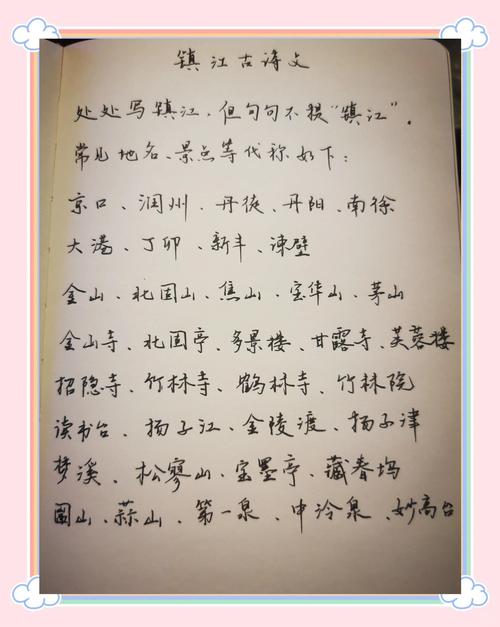 镇江古诗文
处处写镇江，但句句不提“镇江”。
常见地名、景点等代称如下：
京口、润州、丹徒、丹阳、南徐
大港、丁卯、新丰、谏壁
金山、北固山、焦山、宝华山、茅山
金山寺、北固亭、多景楼、甘露寺、芙蓉楼
招隐寺、竹林寺、鹤林寺、竹林院
读书台、扬子江、金陵渡、扬子津
梦溪、松寥山、宝墨亭、藏春坞
圌山、蒜山、第一泉、中泠泉、妙高台